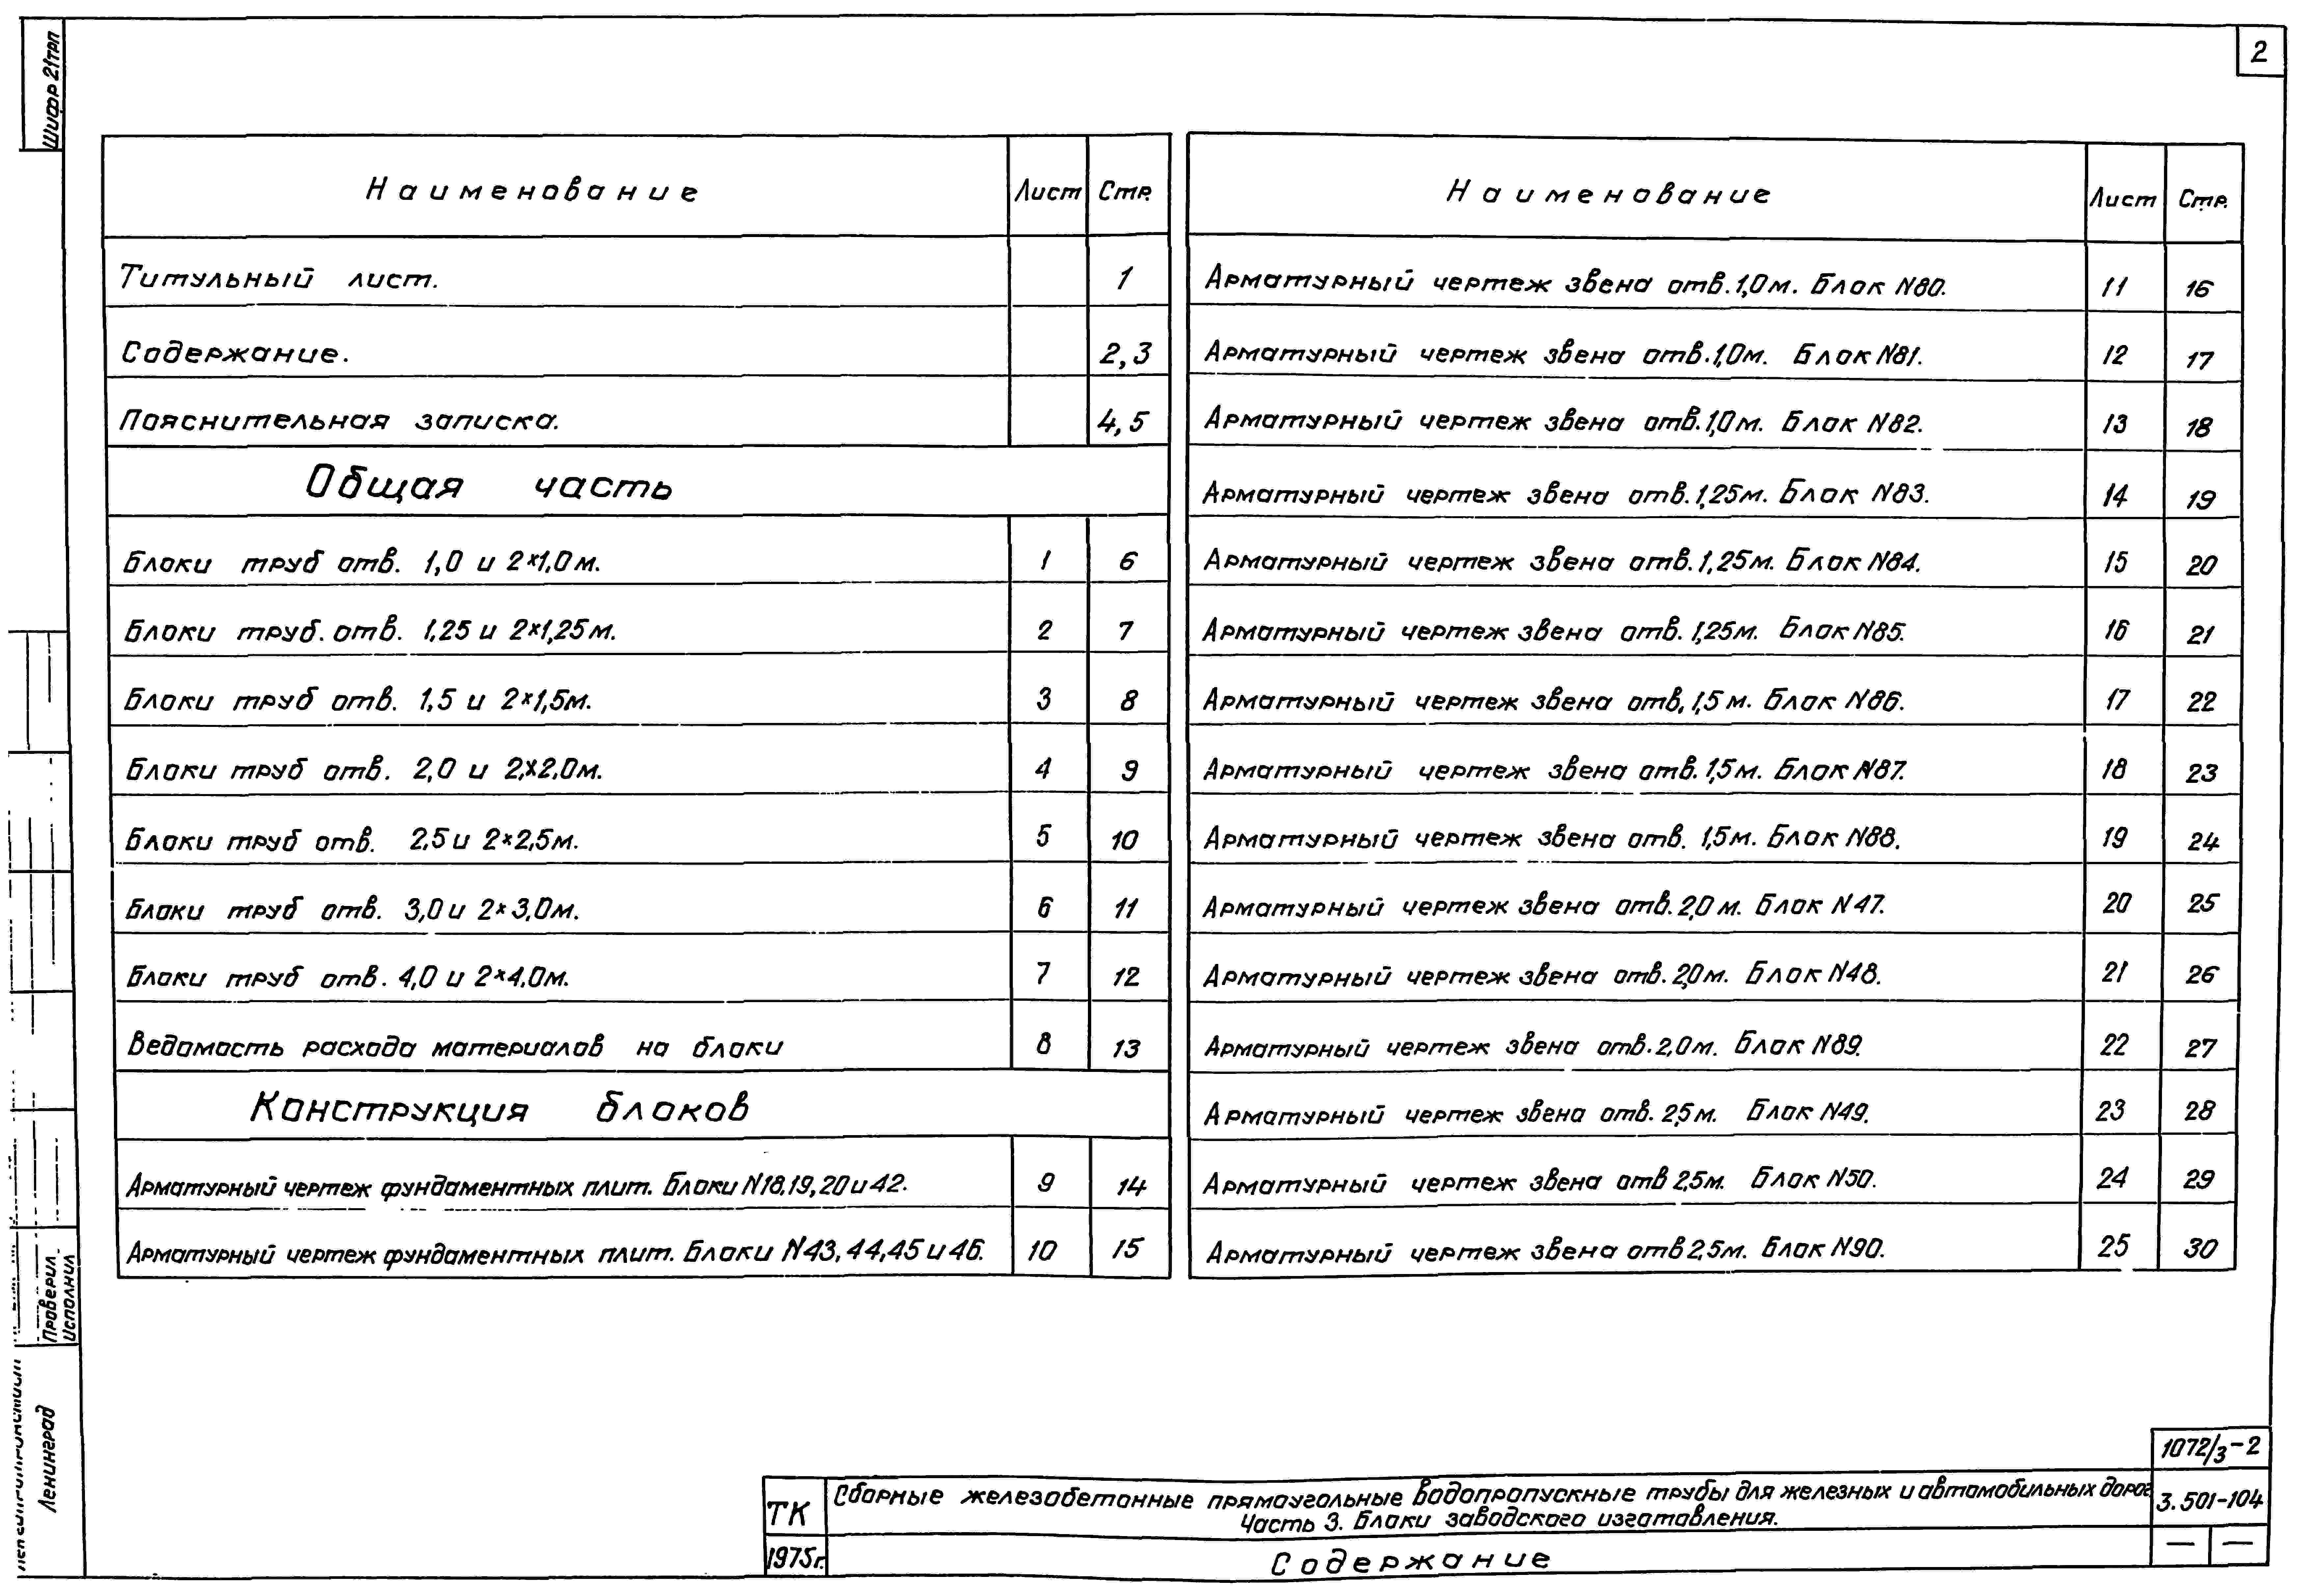 2
Шифр 21ТРП
Наименование Лист Стр.
Титульный лист. 1
Содержание. 2,3
Пояснительная записка. 4,5
Общая часть
Блоки труб отв. 1,0 и 2×1,0м. 1 6
Блоки труб. отв. 1,25 и 2×1,25м. 2 7
Блоки труб отв. 1,5 и 2×1,5м. 3 8
Блоки труб отв. 2,0 и 2×2,0м. 4 9
Блоки труб отв. 2,5 и 2×2,5м. 5 10
Блоки труб отв. 3,0 и 2×3,0м. 6 11
Блоки труб отв. 4,0 и 2×4,0м. 7 12
Ведомость расхода материалов на блоки 8 13
Конструкция блоков
Арматурный чертеж фундаментных плит. Блоки N18,19,20 и 42. 9 14
Арматурный чертеж фундаментных плит. Блоки N43,44,45 и 46. 10 15
Наименование Лист Стр.
Арматурный чертеж звена отв. 1,0м. Блок N80. 11 16
Арматурный чертеж звена отв. 1,0м. Блок N81. 12 17
Арматурный чертеж звена отв. 1,0м. Блок N82. 13 18
Арматурный чертеж звена отв. 1,25м. Блок N83. 14 19
Арматурный чертеж звена отв. 1,25м. Блок N84. 15 20
Арматурный чертеж звена отв. 1,25м. Блок N85. 16 21
Арматурный чертеж звена отв. 1,5м. Блок N86. 17 22
Арматурный чертеж звена отв. 1,5м. Блок N87. 18 23
Арматурный чертеж звена отв. 1,5м. Блок N88. 19 24
Арматурный чертеж звена отв. 2,0м. Блок N47. 20 25
Арматурный чертеж звена отв. 2,0м. Блок N48. 21 26
Арматурный чертеж звена отв. 2,0м. Блок N89. 22 27
Арматурный чертеж звена отв. 2,5м. Блок N49. 23 28
Арматурный чертеж звена отв 2,5м. Блок N50. 24 29
Арматурный чертеж звена отв 2,5м. Блок N90. 25 30
Проверил
Исполнил
Ленинград
1072/3-2
ТК Сборные железобетонные прямоугольные водопропускные трубы для железных и автомобильных дорог 3.501-104
Часть 3. Блоки заводского изготовления.
1975г. Содержание — —